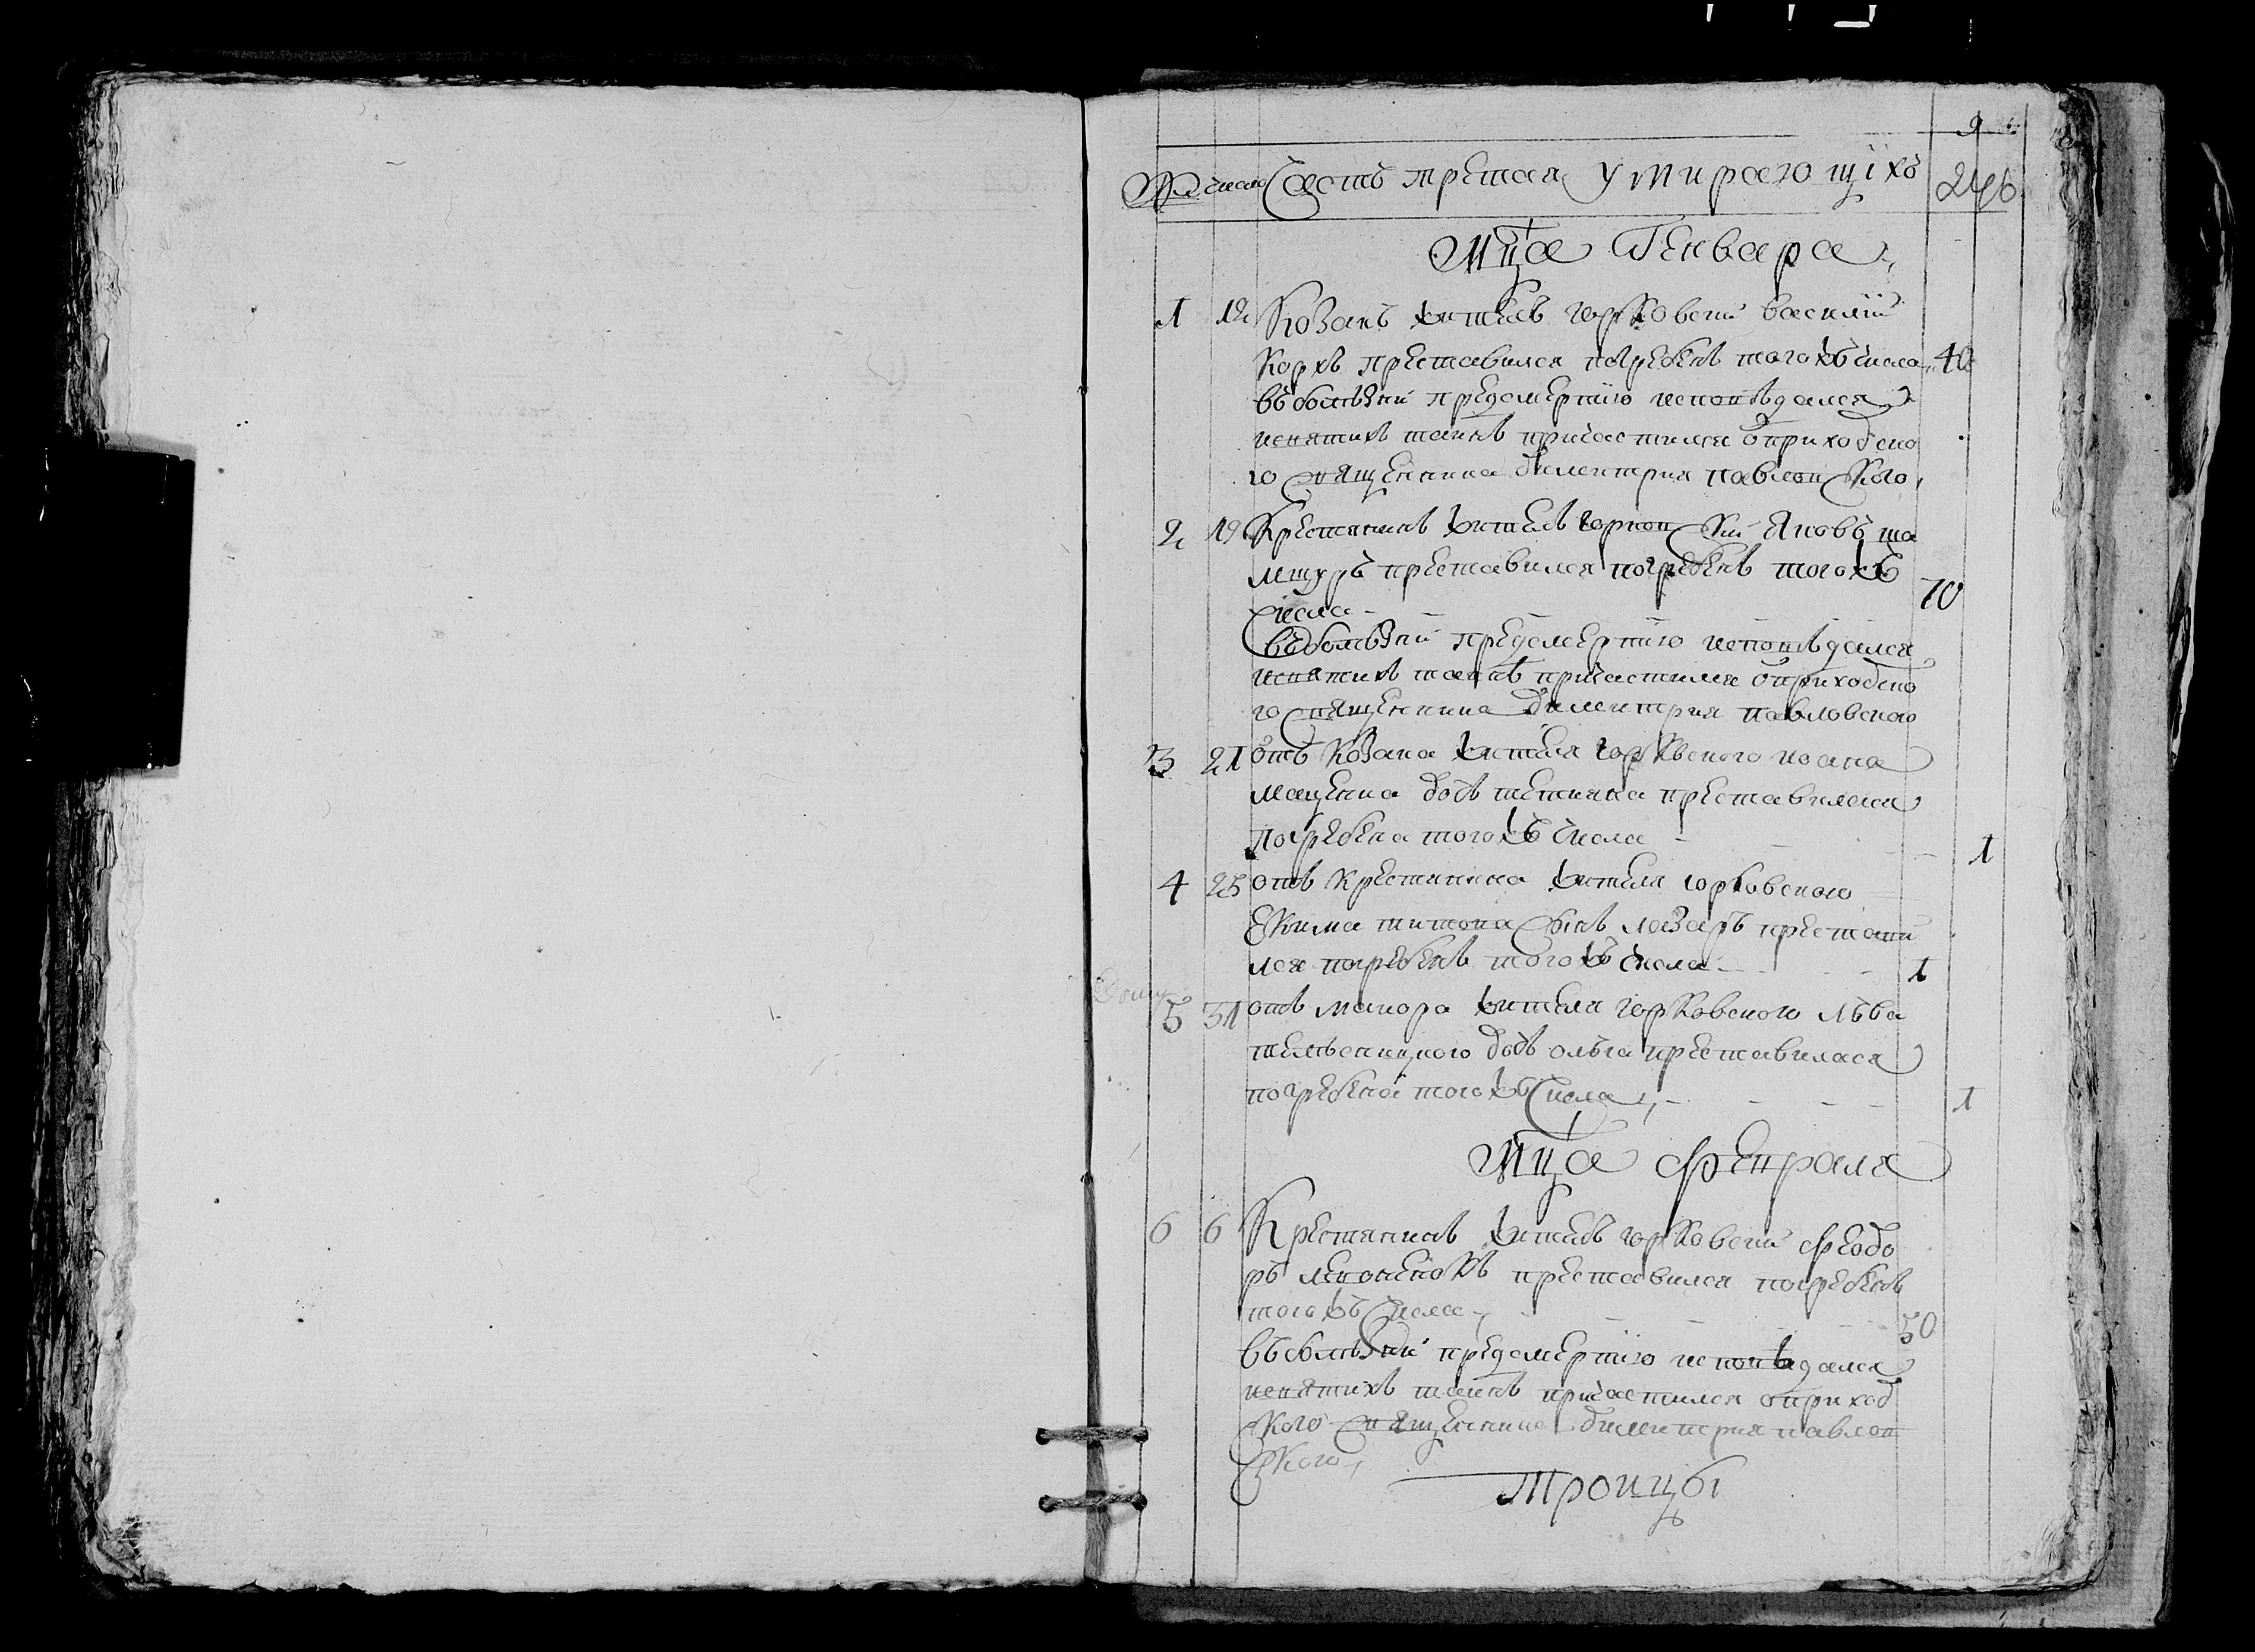 9
№ число Часть третая умирающихъ 246
Мца Генвара
1 12 Козакъ житель горковский василий
Корхъ преставился погребенъ того жъ числа 40
въ болѣзни предсмертию исповѣдался
исвятихъ таинъ причастился отприходско
го священника димитрия павловского
2 19 Крестянинъ житель горковский Яковъ
преставился погребенъ того жъ
числа 70
въ болѣзни предсмертию исповѣдался
исвятихъ таинъ причастился отприходско
го священника димитрия павловского
3 21 отъ Козака жителя горковского иоана
мащенка дочъ преставилася
погребена того жъ числа 1
4 25 отъ крестянина жителя горковского
Екима титона сынъ лазаръ престави
лся погребенъ того жъ числа 1
5 31 отъ маиора жителя горковского лъва
дочъ олъга преставилася
погребена того жъ числа 1
Мца февраля
6 6 Крестянинъ житель горковский феодо
ръ преставился погребенъ
того жъ числа 50
въ болѣзни предсмертию исповѣдался
исвятихъ таинъ причастился отприход
ского священника димитрия павлов
ского
троицы